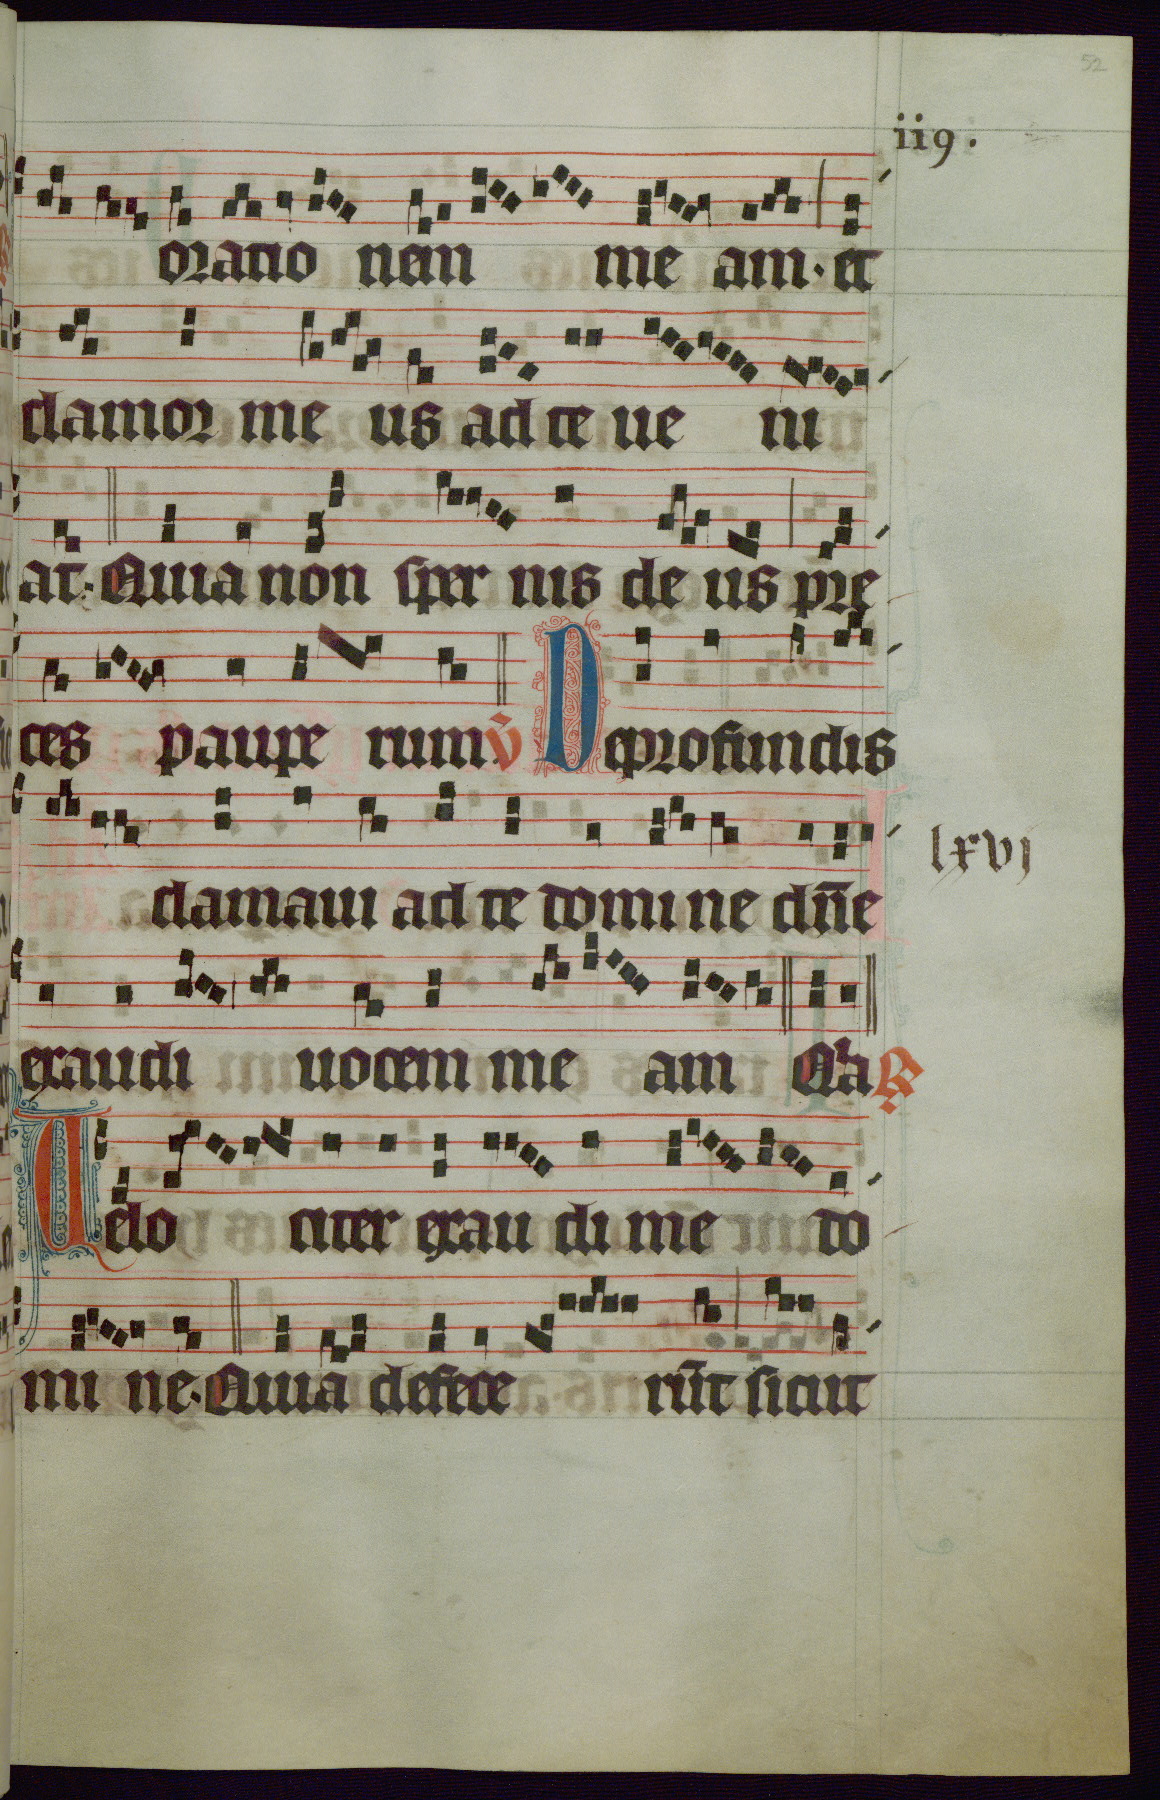 52
119.
oratio nem me am. et
clamor me us ad te ue ni
at. Quia non sper nis de us pre
ces paupe rum. V De profundis
clamaui ad te domine dne
lxvj
exaudi uocem me am Qia R
Uelo citer exau di me do
mi ne. Quia defece rūt sicut